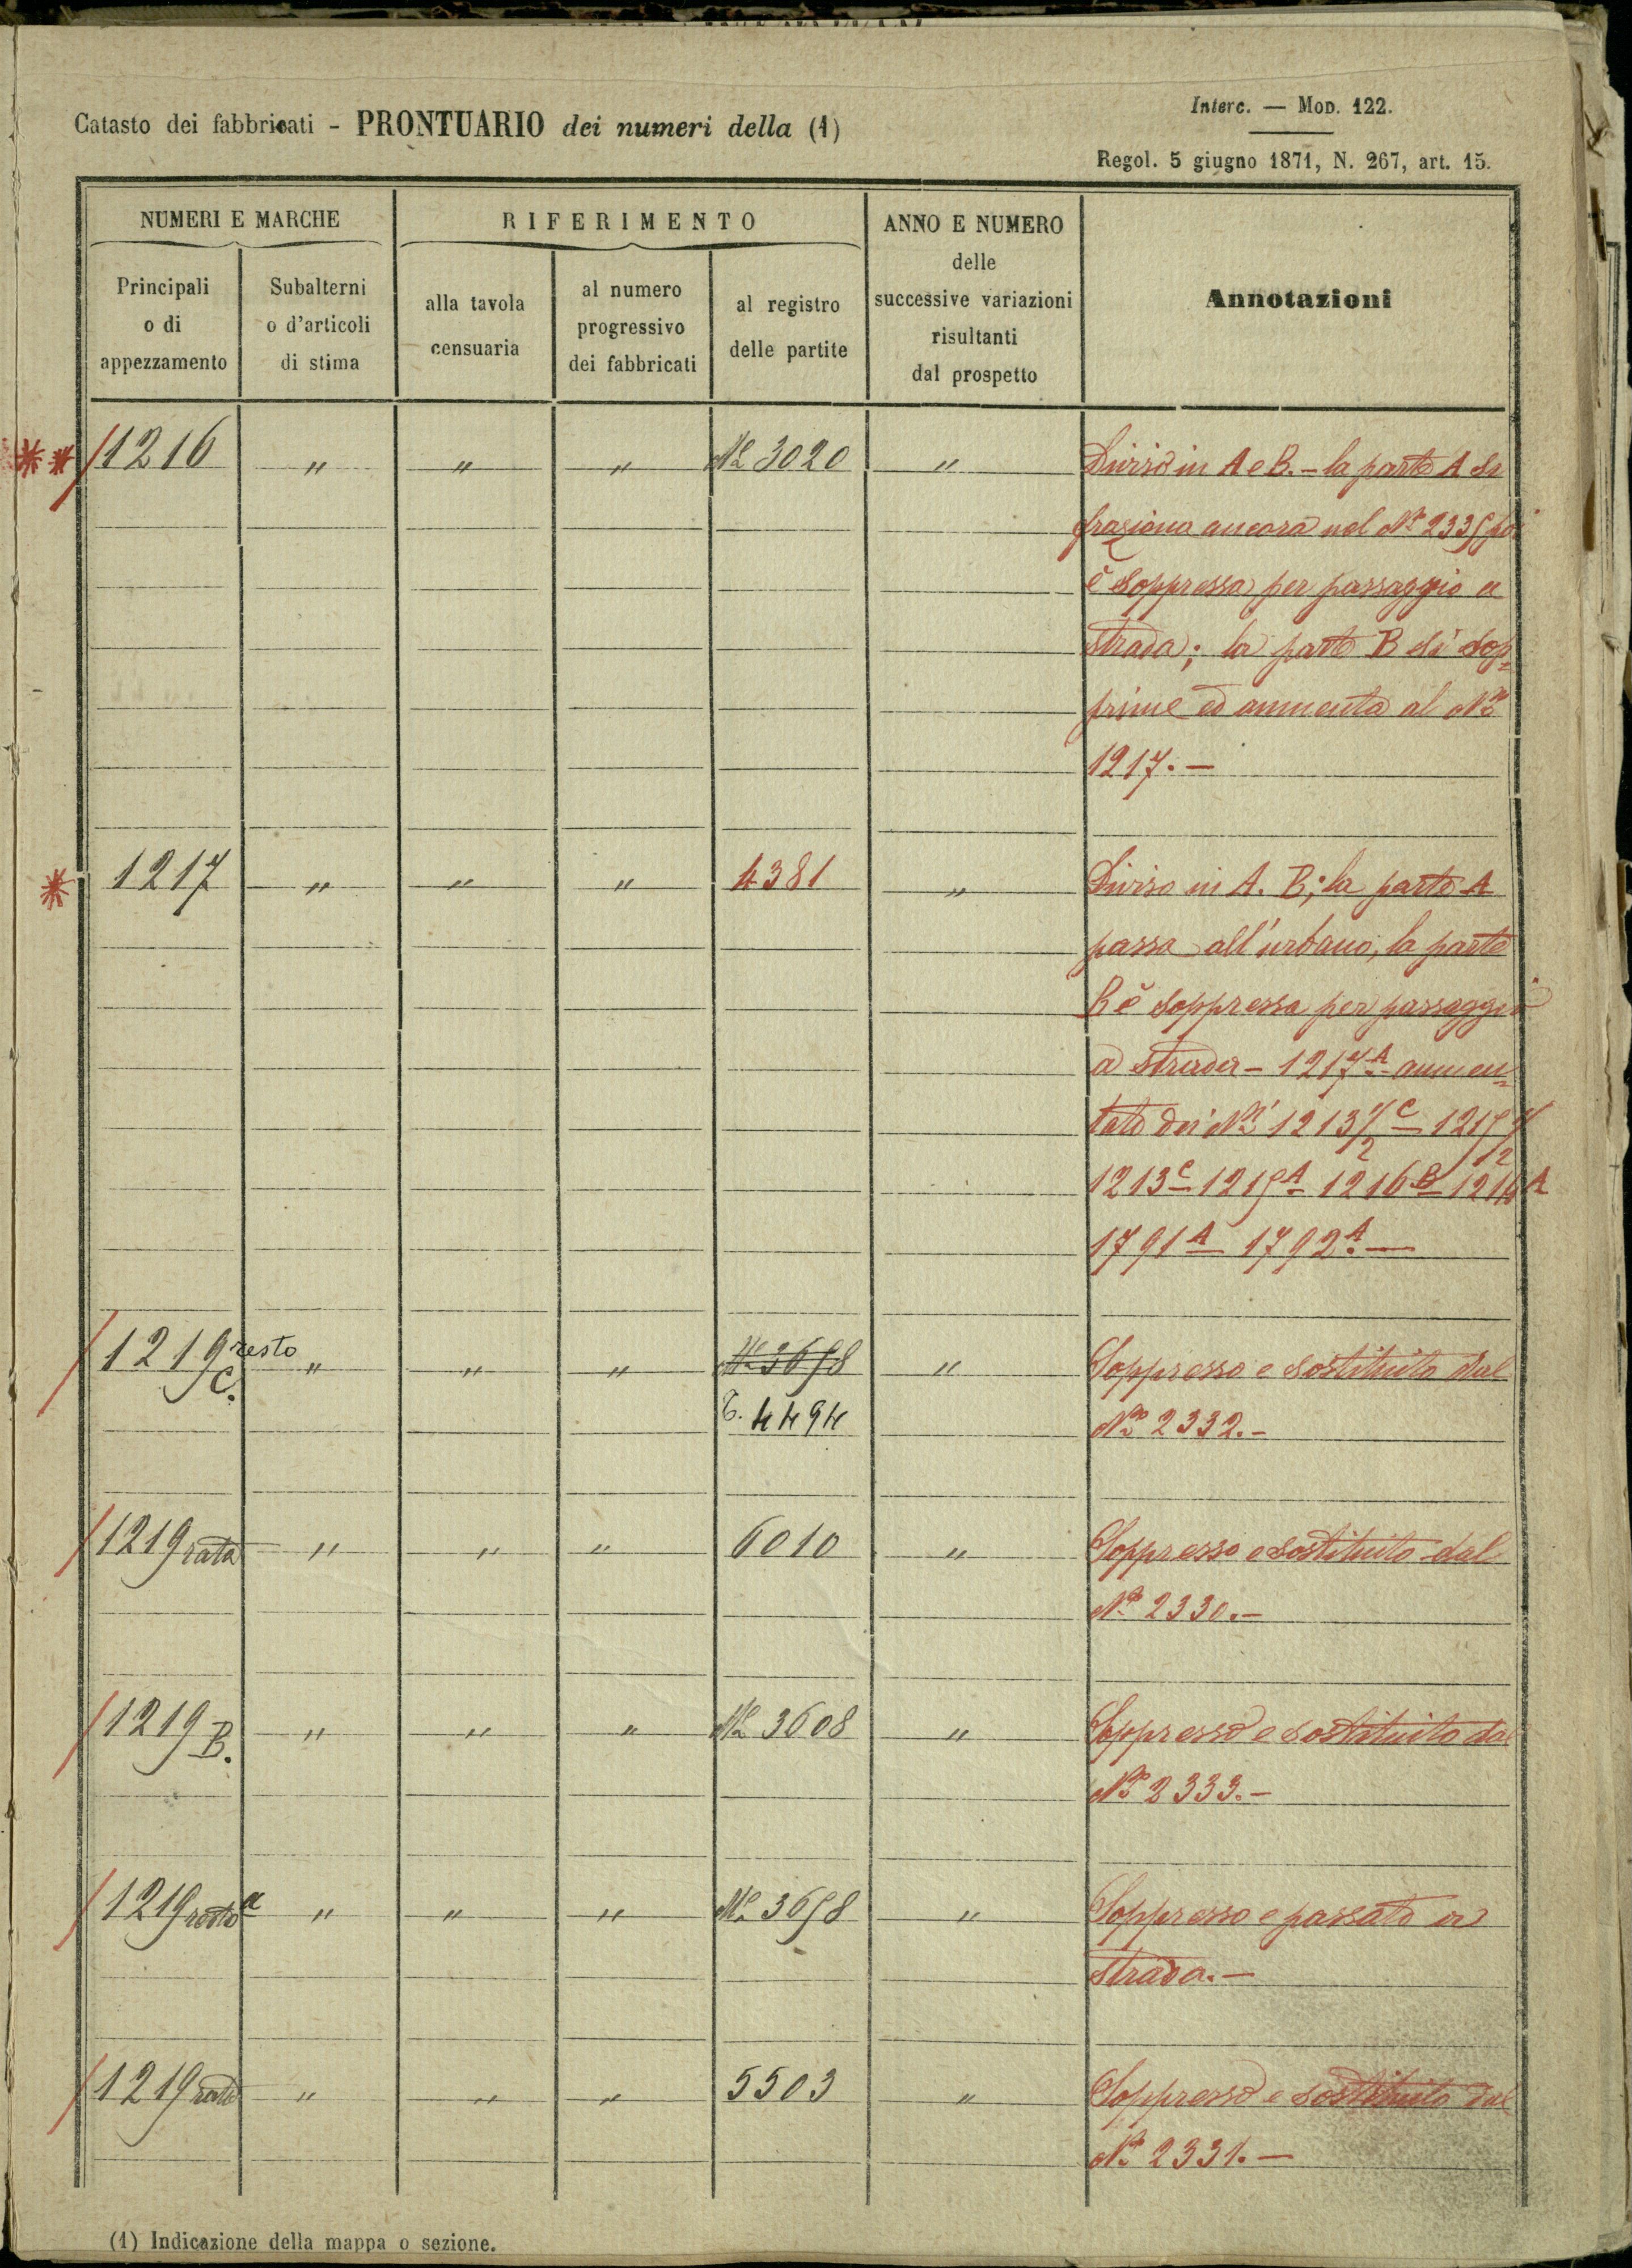 Interc. — Mod. 122.
Catasto dei fabbricati - PRONTUARIO dei numeri della (1)
Regol. 5 giugno 1871, N. 267, art. 15.
NUMERI E MARCHE
RIFERIMENTO
ANNO E NUMERO
delle
successive variazioni
risultanti
dal prospetto
Annotazioni
Principali
o di
appezzamento
Subalterni
o d'articoli
di stima
alla tavola
censuaria
al numero
progressivo
dei fabbricati
al registro
delle partite
1216 " " " No 3020 " Diviso in A e B. - la parte A si
fraziona ancora nel No 2335 poi
è soppressa per passaggio a
strada; la parte B si sop=
prime ed aumenta al No
1217. —
1217 " " " 4381 " Diviso in A. B; la parte A
passa all'urbano, la parte
B è soppressa per passaggio
a strada - 1217 A aumen=
tato dei Ni 1213 1/2 C 1215 1/2
1213 C 1215 A 1216 B 1216 A
1791 A 1792 A. —
1219 resto C. " " " No 3658 " Soppresso e sostituito dal
T. 4494 No 2332. -
1219 rata " " " 6010 " Soppresso e sostituito dal
No 2330. -
1219 B. " " " No 3608 " Soppresso e sostituito dal
No 2333. -
1219 resto a " " " No 3658 " Soppresso e passato a
strada. —
1219 rata " " " 5503 " Soppresso e sostituito dal
No 2331. —
(1) Indicazione della mappa o sezione.